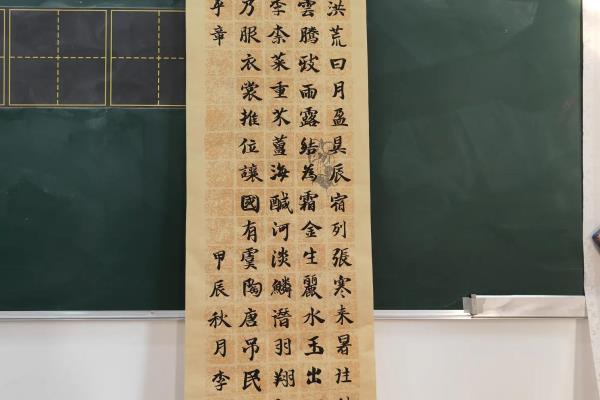 洪荒日月盈昃辰宿列張寒来暑往
雲騰致雨露結為霜金生麗水玉出
李柰菜重芥薑海醎河淡鱗潛羽翔
乃服衣裳推位讓國有虞陶唐吊民
平章
甲辰秋月李